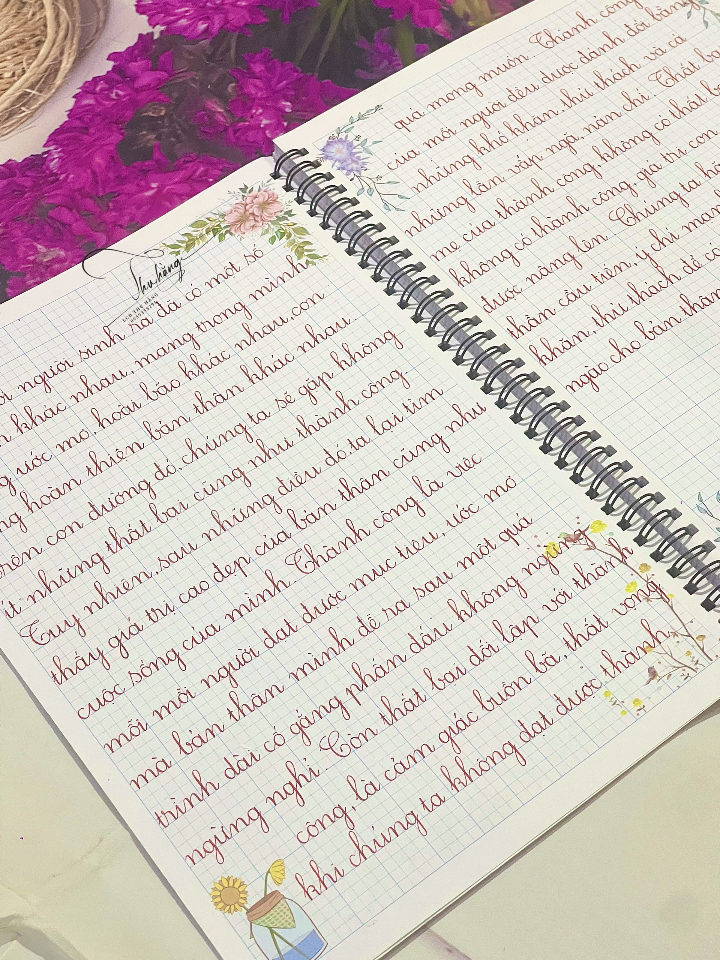 Thu hằng
người sinh ra đã có một số
khác nhau, mang trong mình
ước mơ, hoài bão khác nhau, con
hoàn thiện bản thân khác nhau.
trên con đường đó, chúng ta sẽ gặp không
những thất bại cũng như thành công
Tuy nhiên, sau những điều đó, ta lại tìm
thấy giá trị cao đẹp của bản thân cũng như
cuộc sống của mình. Thành công là việc
mỗi mỗi người đạt được mục tiêu, ước mơ
mà bản thân mình đề ra sau một quá
trình dài cố gắng phấn đấu không ngừng
ngừng nghỉ. Còn thất bại đối lập với thành
công, là cảm giác buồn bã, thất vọng
khi chúng ta không đạt được thành
quả mong muốn. Thành công
của mỗi người đều được đánh đổi bằng
những khó khăn, thử thách và cả
những lần vấp ngã, nản chí. Thất
mẹ của thành công, không có thất
không có thành công, giá trị con
được nâng lên. Chúng ta
thần cầu tiến, ý chí
khăn, thử thách để có
ngào cho bản thân